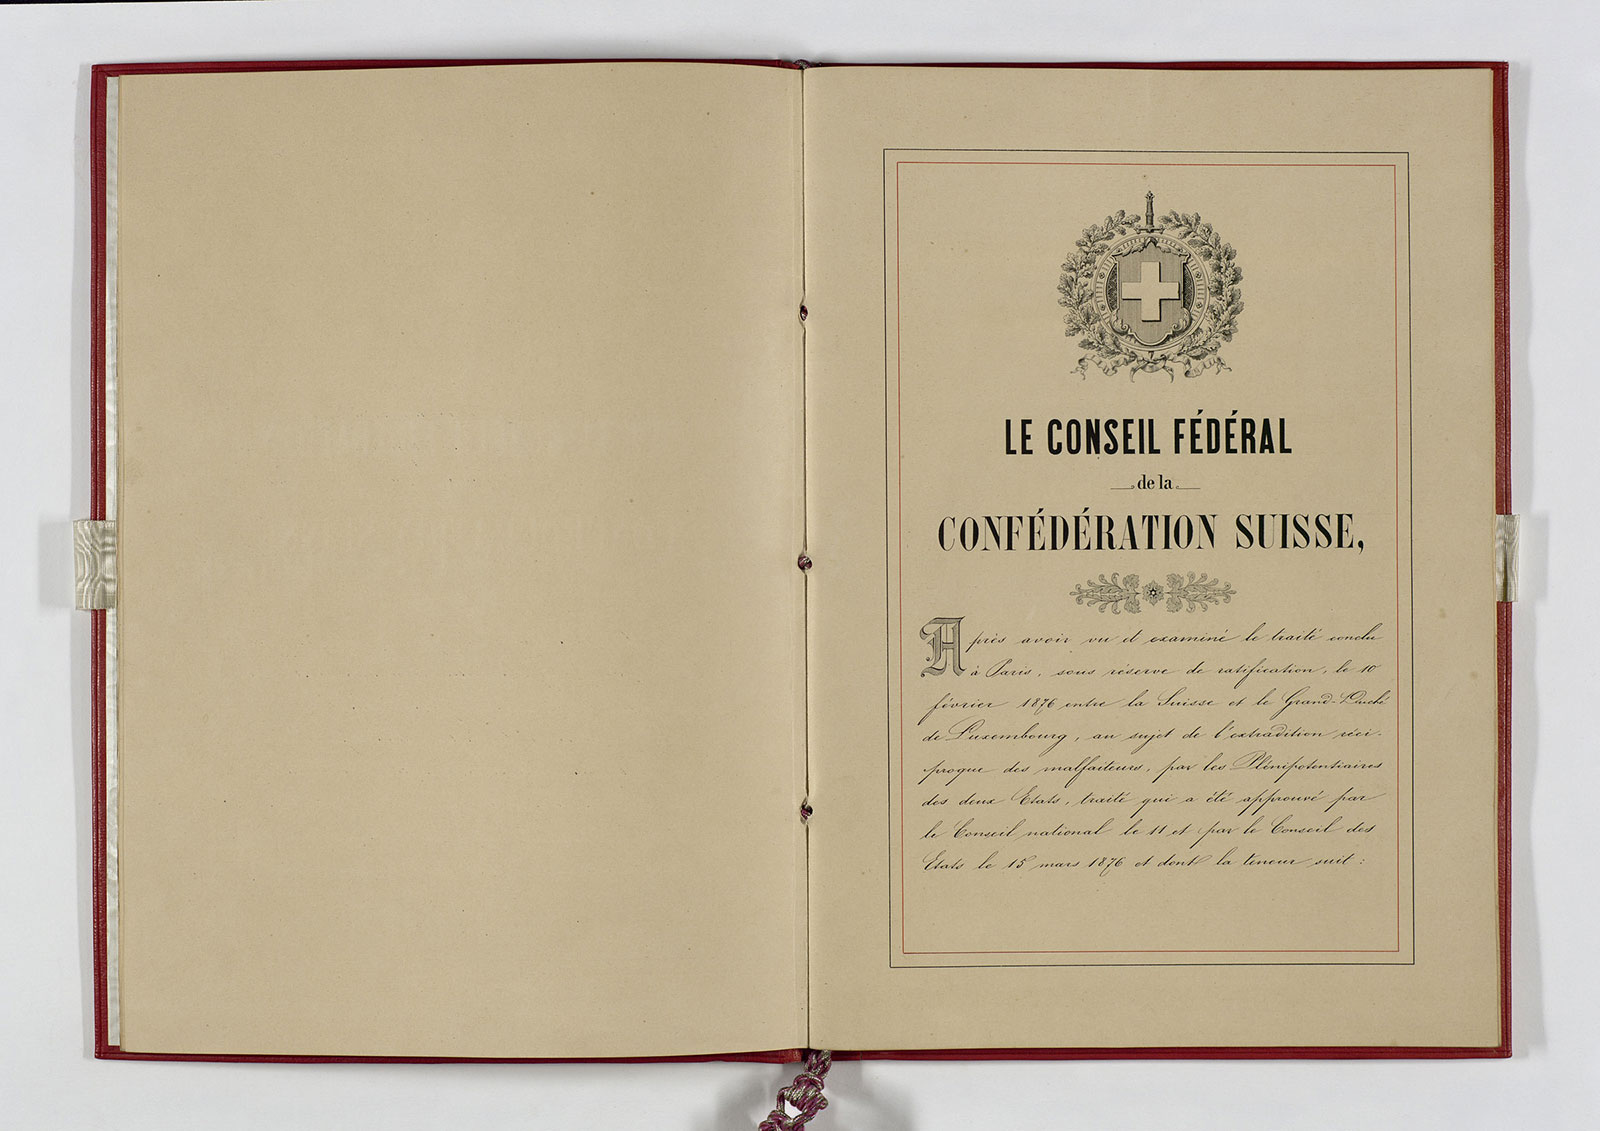 LE CONSEIL FÉDÉRAL
de la
CONFÉDÉRATION SUISSE,
Après avoir vu et examiné le traité conclu
à Paris, sous réserve de ratification, le 10
février 1876 entre la Suisse et le Grand-Duché
de Luxembourg, au sujet de l'extradition réci-
proque des malfaiteurs, par les Plénipotentiaires
des deux Etats, traité qui a été approuvé par
le Conseil national le 11 et par le Conseil des
Etats le 15 mars 1876 et dont la teneur suit: